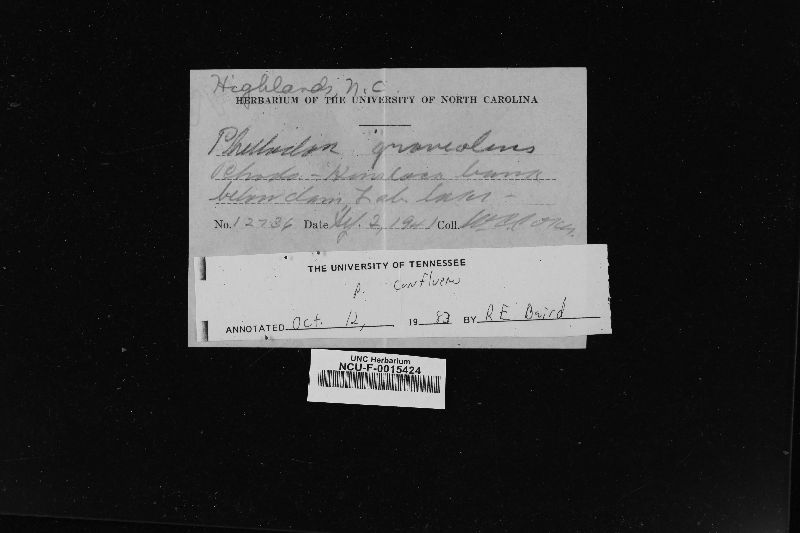 Highlands, N.C.
HERBARIUM OF THE UNIVERSITY OF NORTH CAROLINA
Phellodon graveolens
bank
below dam, Lab. lake -
No. 12736 Date 2, 1941 Coll.
THE UNIVERSITY OF TENNESSEE
P. confluens
ANNOTATED Oct. 12, 19 83 BY R E Baird
UNC Herbarium
NCU-F-0015424